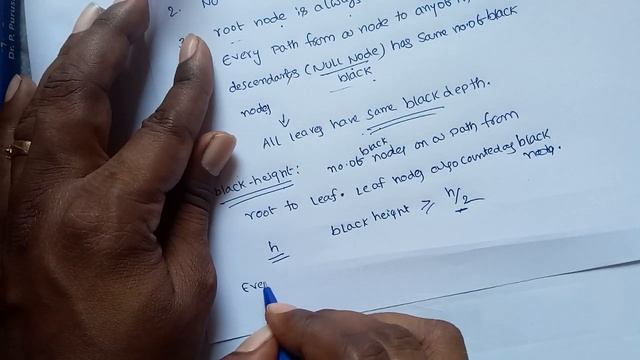 2. No
root node is always
Every path from a node to any of
descendants (NULL Node) has same no.of black
black
nodes
All leaves have same black depth.
black-height: no.of back nodes on a path from
root to leaf. Leaf nodes also counted as black
nodes.
h black height ≥ h/2
Eve
Dr. P. Purus